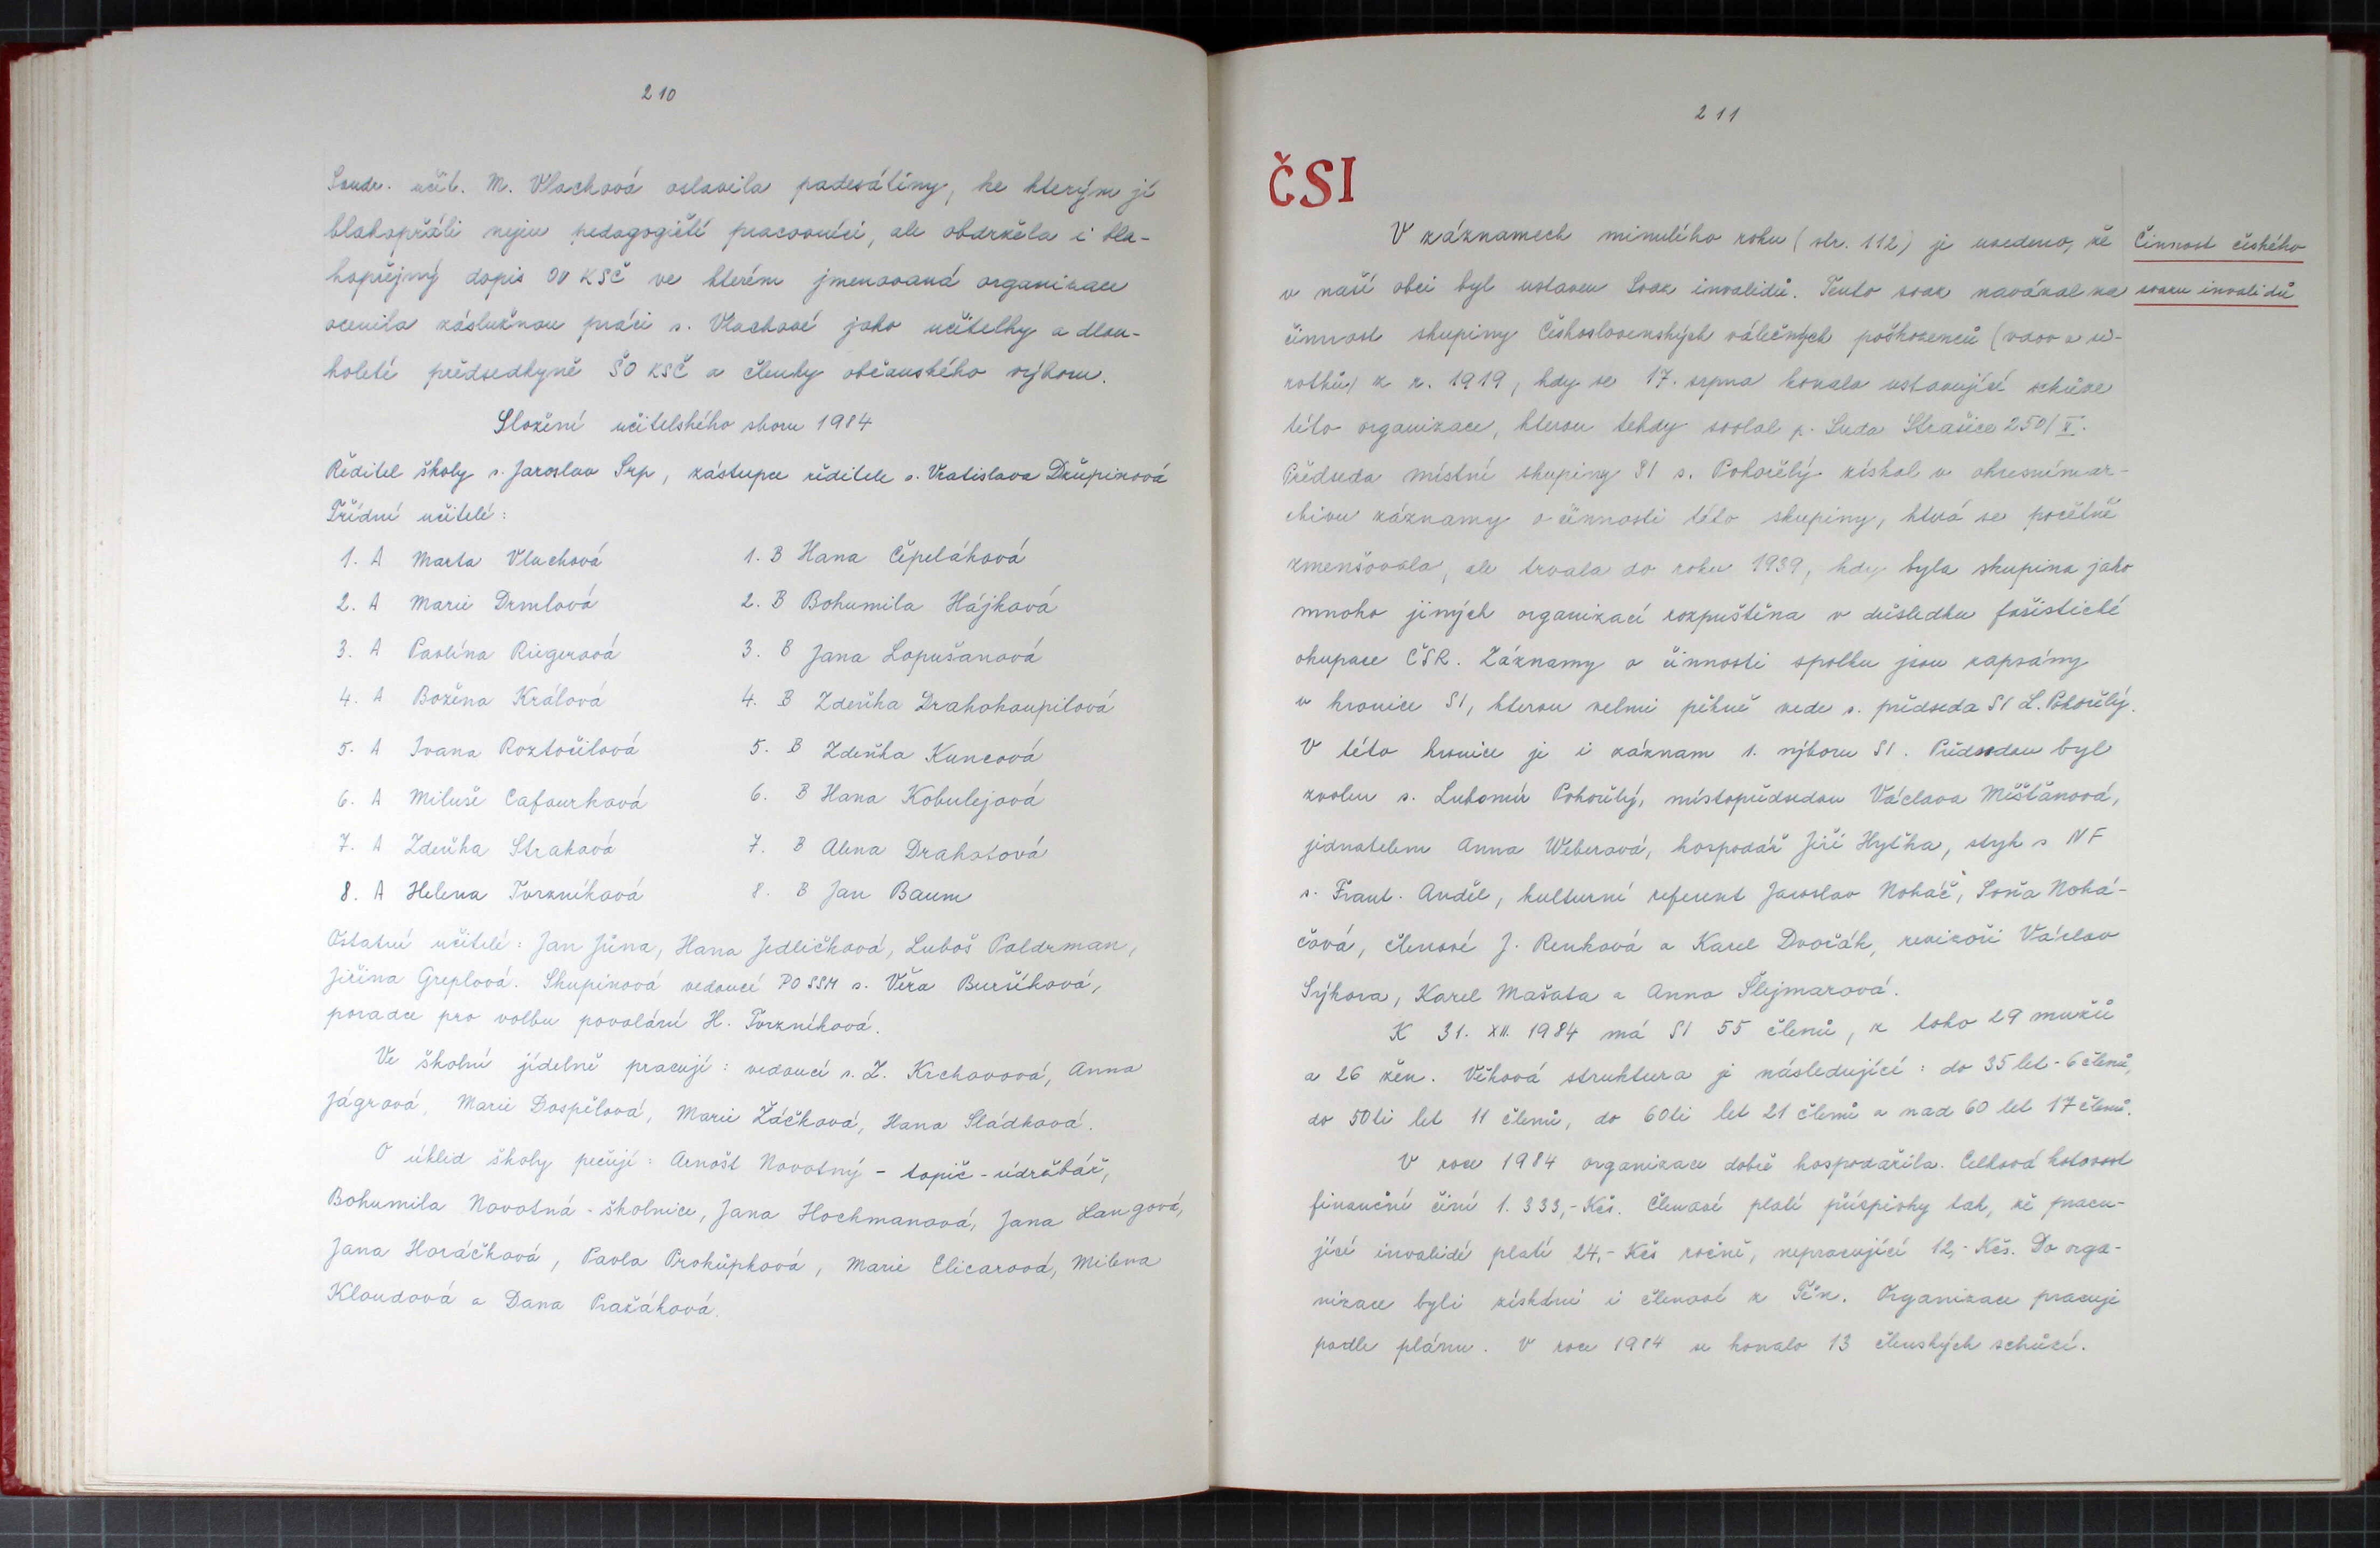 210
Soudr. učit. M. Vlachová oslavila padesátiny, ke kterým jí
blahopřáli nejen pedagogičtí pracovníci, ale obdržela i bla-
hopřejný dopis OV KSČ ve kterém jmenovaná organizace
ocenila záslužnou práci s. Vlachové jako učitelky a dlou-
holeté předsedkyně ŠO KSČ a členky občanského výboru.
Složení učitelského sboru 1984
Ředitel školy s. Jaroslav Srp, zástupce ředitele s. Vratislava Džupinová
Třídní učitelé:
1. A Marta Vlachová 1. B Hana Čepeláková
2. A Marie Drmlová 2. B Bohumila Hájková
3. A Pavlína Riegerová 3. B Jana Lopušanová
4. A Božena Králová 4. B Zdeňka Drahokoupilová
5. A Ivana Roztočilová 5. B Zdeňka Kuncová
6. A Miluše Cafourková 6. B Hana Kobulejová
7. A Zdeňka Straková 7. B Alena Drahotová
8. A Helena Tvrzníková 8. B Jan Baum
Ostatní učitelé: Jan Jůna, Hana Jedličková, Luboš Paldrman,
Jiřina Greplová. Skupinová vedoucí PO SSM s. Věra Buršíková,
poradce pro volbu povolání H. Tvrzníková.
Ve školní jídelně pracují: vedoucí s. Z. Krchovová, Anna
Jágrová, Marie Dospělová, Marie Žáčková, Hana Sládková.
O úklid školy pečují: Arnošt Novotný - topič - údržbář,
Bohumila Novotná - školnice, Jana Hochmanová, Jana Langová,
Jana Horáčková, Pavla Prokůpková, Marie Elicarová, Milena
Kloudová a Dana Pražáková.
211
ČSI
V záznamech minulého roku (str. 112) je uvedeno, že
v naší obci byl ustaven Svaz invalidů. Tento svaz navázal na
činnost skupiny Československých válečných poškozenců (vdov a si-
rotků) z r. 1919, kdy se 17. srpna konala ustavující schůze
této organizace, kterou tehdy svolal p. Suda Strašice 250/V.
Předseda místní skupiny SI s. Pohořelý získal v okresním ar-
chivu záznamy o činnosti této skupiny, která se početně
zmenšovala, ale trvala do roku 1939, kdy byla skupina jako
mnoho jiných organizací rozpuštěna v důsledku fašistické
okupace ČSR. Záznamy o činnosti spolku jsou zapsány
v kronice SI, kterou velmi pěkně vede s. předseda SI L. Pohořelý.
V této kronice je i záznam 1. výboru SI. Předsedou byl
zvolen s. Lubomír Pohořelý, místopředsedou Václava Měšťanová,
jednatelem Anna Weberová, hospodář Jiří Hyťha, styk s NF
s. Frant. Anděl, kulturní referent Jaroslav Noháč, Soňa Nohá-
čová, členové J. Renková a Karel Dvořák, revizoři Václav
Sýkora, Karel Mašata a Anna Šlejmarová.
K 31. XII. 1984 má SI 55 členů, z toho 29 mužů
a 26 žen. Věková struktura je následující: do 35 let - 6 členů,
do 50ti let 11 členů, do 60ti let 21 členů a nad 60 let 17 členů.
V roce 1984 organizace dobře hospodařila. Celková hotovost
finanční činí 1.333,- Kčs. Členové platí příspěvky tak, že pracu-
jící invalidé platí 24,- Kčs ročně, nepracující 12,- Kčs. Do orga-
nizace byli získáni i členové z Těn. Organizace pracuje
podle plánu. V roce 1984 se konalo 13 členských schůzí.
Činnost českého
svazu invalidů